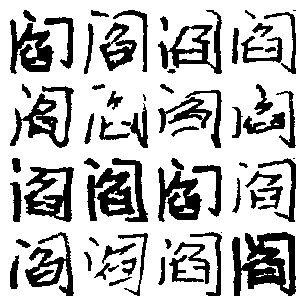 阎阎阎阎
阎阎阎阎
阎阎阎阎
阎阎阎阎